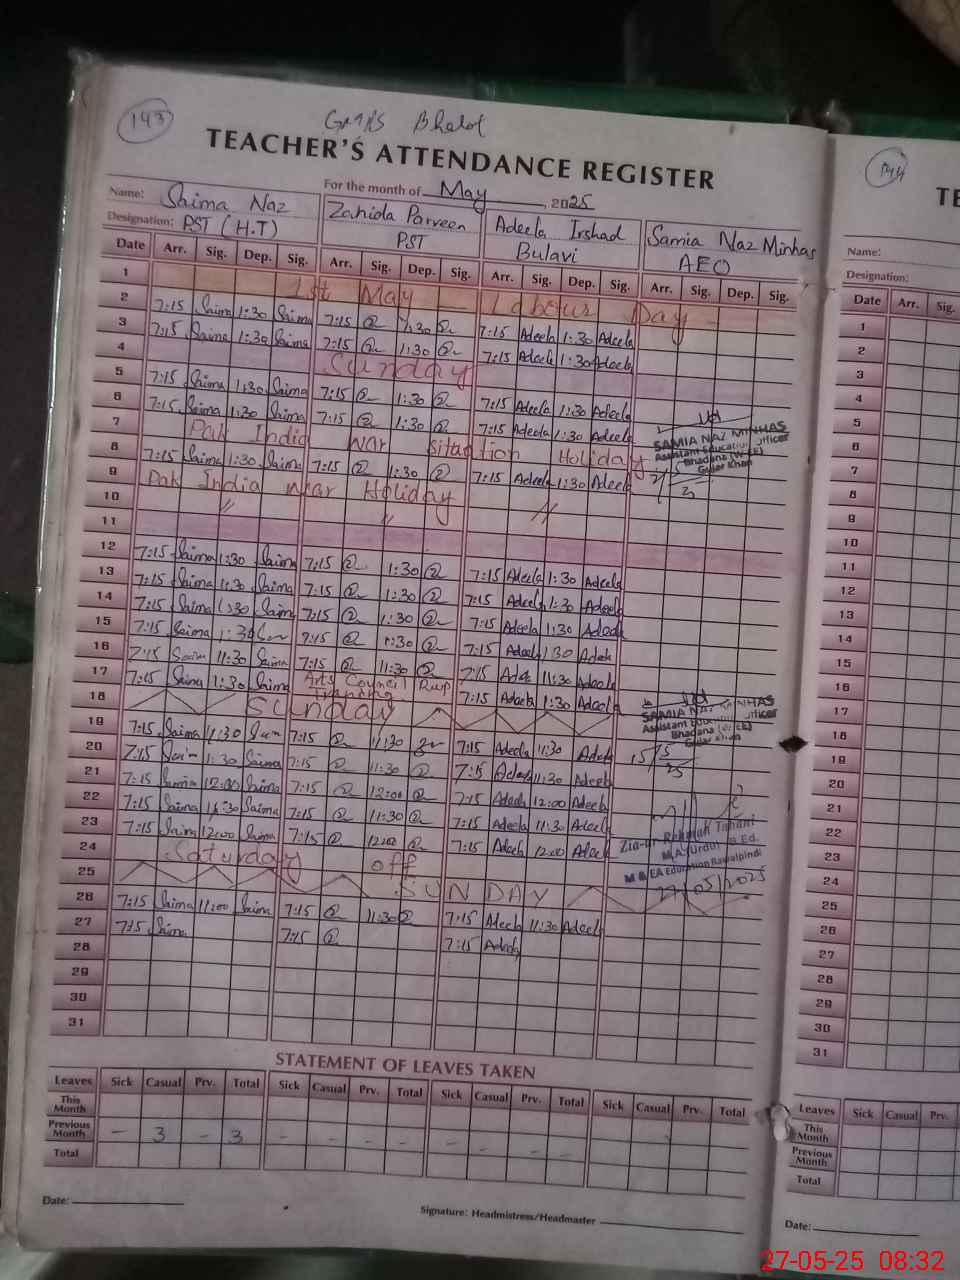 143
GMPS Bhalot
TEACHER'S ATTENDANCE REGISTER
For the month of May, 2025
Name: Saima Naz Zahida Parveen Adeela Irshad Samia Naz Minhas
Designation: PST (H.T) PST Bulavi AEO
Date Arr. Sig. Dep. Sig. Arr. Sig. Dep. Sig. Arr. Sig. Dep. Sig. Arr. Sig. Dep. Sig.
1 1st May Labour Day
2 7:15 Saima 1:30 Saima 7:15 1:30 7:15 Adeela 1:30 Adeela
3 7:15 Saima 1:30 Saima 7:15 1:30 7:15 Adeela 1:30 Adeela
4 Sunday
5 7:15 Saima 1:30 Saima 7:15 1:30 7:15 Adeela 1:30 Adeela
6 7:15 Saima 1:30 Saima 7:15 1:30 7:15 Adeela 1:30 Adeela
7 Pak India war situation Holiday
8 7:15 Saima 1:30 Saima 7:15 1:30 7:15 Adeela 1:30 Adeela
SAMIA NAZ MINHAS
Assistant Education Officer
Bhadana (W-EE)
Gujar Khan
9 Pak India war Holiday
10 // // //
11
12 7:15 Saima 1:30 Saima 7:15 1:30 7:15 Adeela 1:30 Adeela
13 7:15 Saima 1:30 Saima 7:15 1:30 7:15 Adeela 1:30 Adeela
14 7:15 Saima 1:30 Saima 7:15 1:30 7:15 Adeela 1:30 Adeela
15 7:15 Saima 1:30 7:15 1:30 7:15 Adeela 1:30 Adeela
16 7:15 Saima 11:30 Saima 7:15 11:30 7:15 Adeela 11:30 Adeela
17 7:15 Saima 1:30 Saima Arts Council Rwp Training 7:15 Adeela 1:30 Adeela
18 Sunday
SAMIA NAZ MINHAS
Assistant Education Officer
Bhadana (W-EE)
Gujar Khan
19 7:15 Saima 11:30 7:15 11:30 7:15 Adeela 11:30 Adeela
20 7:15 Saima 11:30 Saima 7:15 11:30 7:15 Adeela 11:30 Adeela
21 7:15 Saima 12:00 Saima 7:15 12:00 7:15 Adeela 12:00 Adeela
22 7:15 Saima 11:30 Saima 7:15 11:30 7:15 Adeela 11:30 Adeela
23 7:15 Saima 12:00 Saima 7:15 12:00 7:15 Adeela 12:00 Adeela
24 Saturday off
25 SUNDAY
Zia-ur-Rehman
M.A. Urdu B.Ed.
M & EA Education Rawalpindi
27/05/2025
26 7:15 Saima 11:00 Saima 7:15 11:30 7:15 Adeela 11:30 Adeela
27 7:15 Saima 7:15 7:15 Adeela
28
29
30
31
STATEMENT OF LEAVES TAKEN
Leaves Sick Casual Prv. Total Sick Casual Prv. Total Sick Casual Prv. Total Sick Casual Prv. Total
This Month
Previous Month - 3 - 3 - - - - - - - -
Total
Date:
Signature: Headmistress/Headmaster
144
TE
Name:
Designation:
Date Arr. Sig.
1
2
3
4
5
6
7
8
9
10
11
12
13
14
15
16
17
18
19
20
21
22
23
24
25
26
27
28
29
30
31
Leaves Sick Casual Prv.
This Month
Previous Month
Total
Date:
27-05-25 08:32